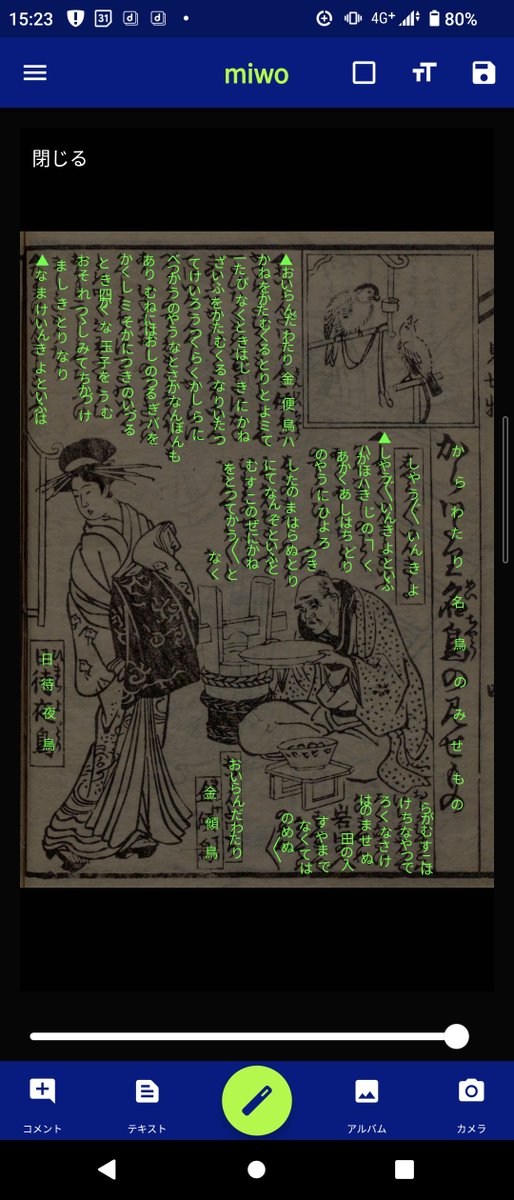 15:23
31
4G+
80%
miwo
閉じる
からわたり名鳥のみせもの
しやうぐいんきよ
▲しやうぐいんきよといふ
かほハきじの「く
あかくあしはちどり
のやうにひよろつき
したのまはらぬとり
にてなんぞといふと
むすこのぜにかね
をとつてかう〱と
なく
▲おいらんだわたり金便鳥ハ
かねをかたむくるとりとよミて
一たびなくときはじきにかね
ざいふをかたむくるなりいたつ
てけいろうつくらくかしらに
べつかうのやうなとさかなんぼんも
ありむねにはおしのつるぎバを
かくしミそかにつきのいづる
とき四かくな玉子をうむ
おそれつゝしみてちかづけ
ましきとりなり
▲なまけいんきよといふは
日待夜鳥
おいらんだわたり
金傾鳥
らがむすこは
けちなやつで
ろくなさけ
はのませぬ
岩田の入
すやまで
なくては
のめぬ〱
コメント
テキスト
アルバム
カメラ